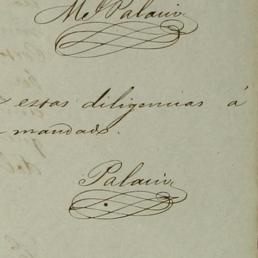 M. Palacio
estas diligencias á
mandado.
Palacio